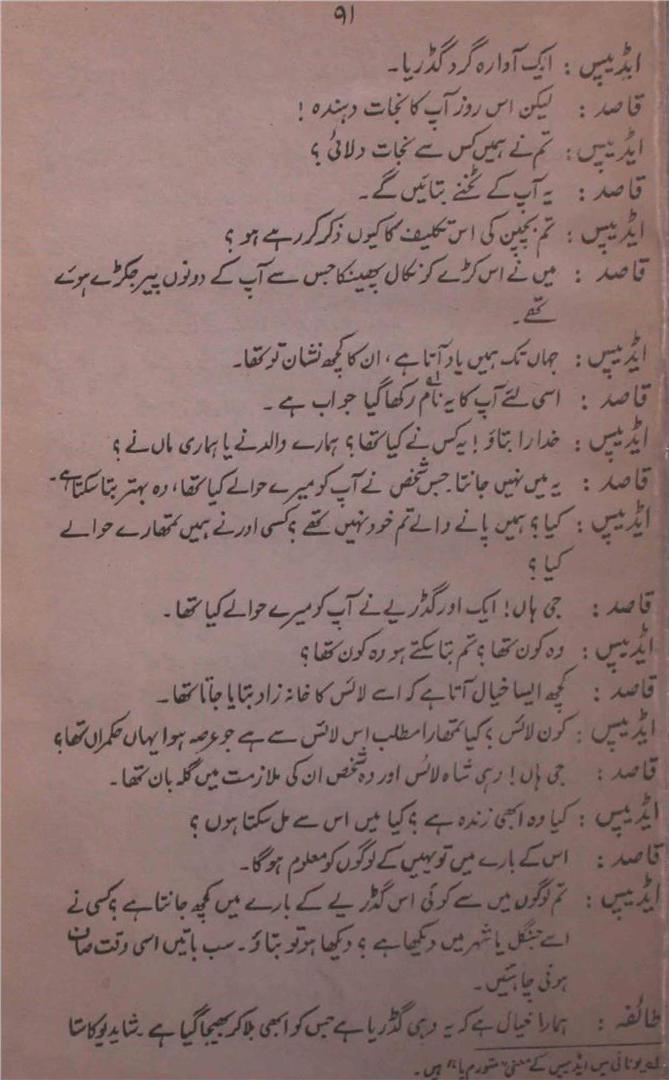 ۹۱
ایڈیپس : ایک آوارہ گرد گڈریا۔
قاصد : لیکن اس روز آپ کا نجات دہندہ !
ایڈیپس : تم نے ہمیں کس سے نجات دلائی ؟
قاصد : یہ آپ کے ٹخنے بتائیں گے۔
ایڈیپس : تم بچپن کی اس تکلیف کا کیوں ذکر کر رہے ہو ؟
قاصد : میں نے اس کڑے کو نکال پھینکا جس سے آپ کے دونوں پیر جکڑے ہوئے
تھے۔
ایڈیپس : جہاں تک ہمیں یاد آتا ہے، ان کا کچھ نشان تو تھا۔
قاصد : اسی لئے آپ کا یہ نام رکھا گیا جو اب ہے ۔
ایڈیپس : خدارا بتاؤ ! یہ کس نے کیا تھا؟ ہمارے والد نے یا ہماری ماں نے ؟
قاصد : یہ میں نہیں جانتا۔ جس شخص نے آپ کو میرے حوالے کیا تھا، وہ بہتر بتا سکتا ہے۔
ایڈیپس : کیا؟ ہمیں پانے والے تم خود نہیں تھے ؟ کسی اور نے ہمیں تمھارے حوالے
کیا ؟
قاصد : جی ہاں! ایک اور گڈریے نے آپ کو میرے حوالے کیا تھا۔
ایڈیپس : وہ کون تھا ؟ تم بتا سکتے ہو وہ کون تھا ؟
قاصد : کچھ ایسا خیال آتا ہے کہ اسے لائس کا خانہ زاد بتایا جاتا تھا۔
ایڈیپس : کون لائس ؟ کیا تمھارا مطلب اس لائس سے ہے جو عرصہ ہوا یہاں حکمراں تھا ؟
قاصد : جی ہاں! وہی شاہ لائس اور وہ شخص ان کی ملازمت میں گلہ بان تھا۔
ایڈیپس : کیا وہ ابھی زندہ ہے ؟ کیا میں اس سے مل سکتا ہوں ؟
قاصد : اس کے بارے میں تو یہیں کے لوگوں کو معلوم ہوگا۔
ایڈیپس : تم لوگوں میں سے کوئی اس گڈریے کے بارے میں کچھ جانتا ہے ؟ کسی نے
اسے جنگل یا شہر میں دیکھا ہے ؟ دیکھا ہو تو بتاؤ۔ سب باتیں اسی وقت صاف
ہونی چاہئیں۔
طائفہ : ہمارا خیال ہے کہ یہ وہی گڈریا ہے جس کو ابھی بلا کر بھیجا گیا ہے ۔ شاید یوکاستا
لے یونانی میں ایڈیپس کے معنی "متورم پا" ہیں۔